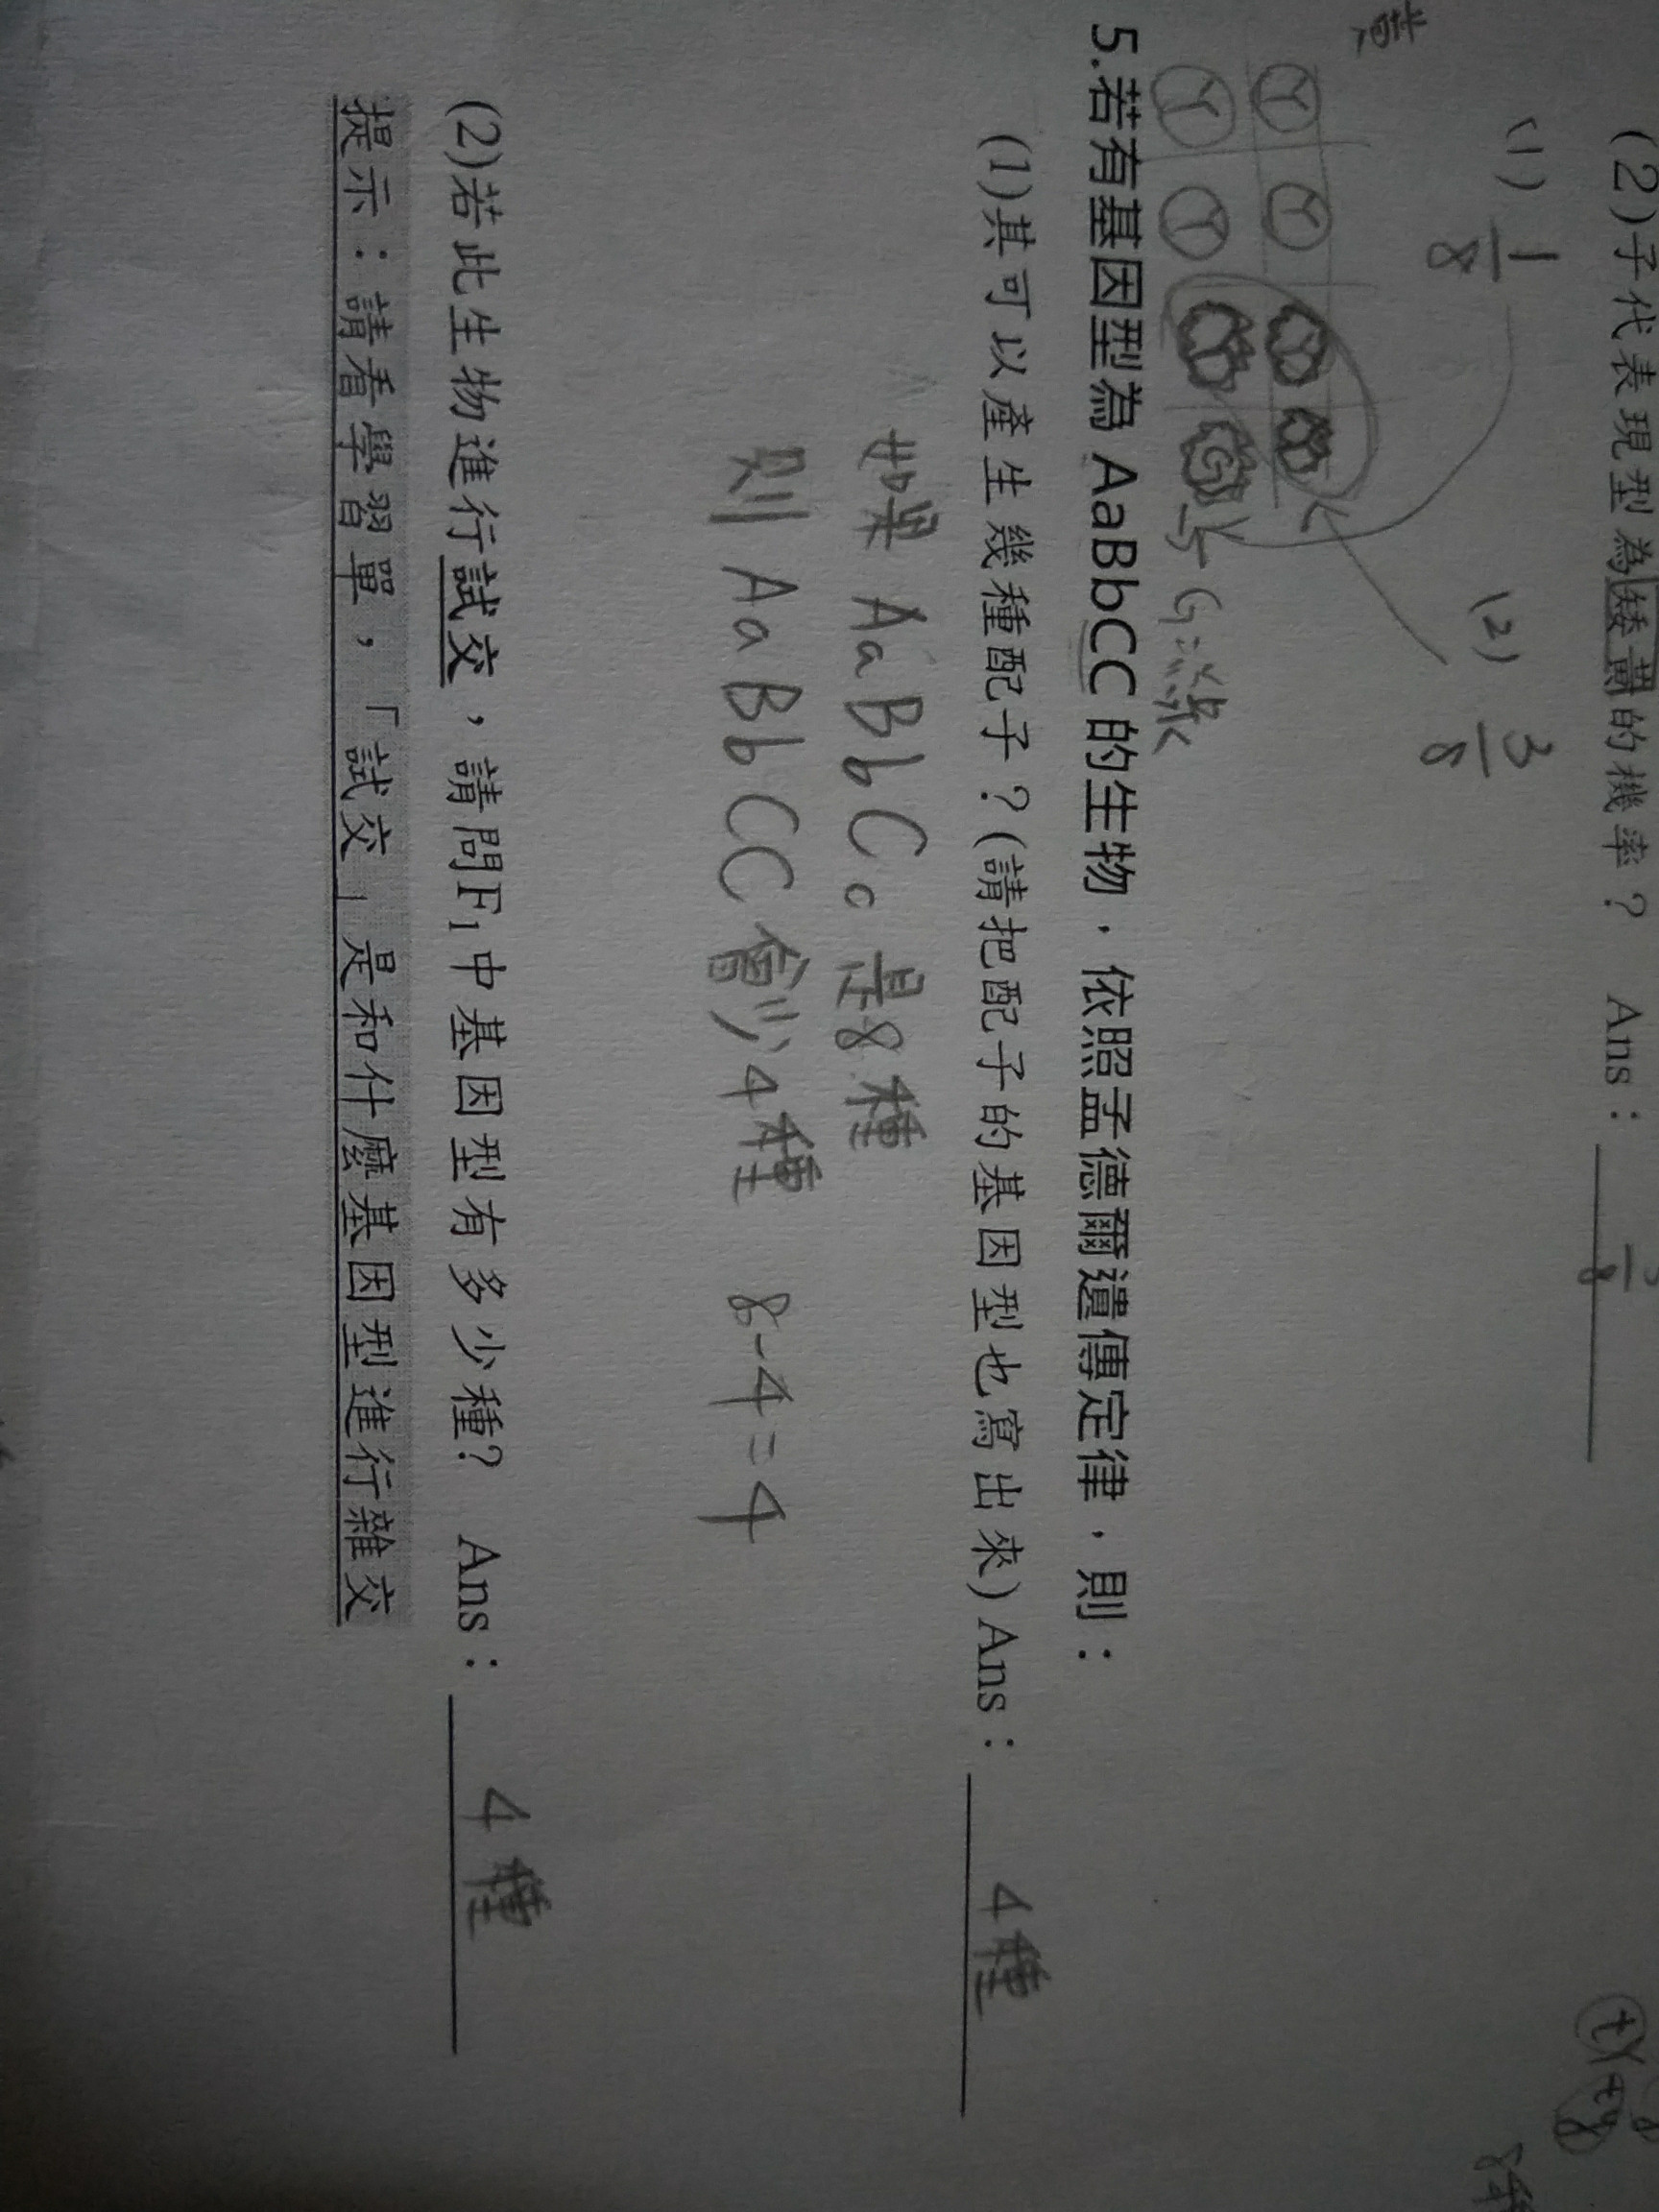 (2)子代表現型為矮黃的機率？ Ans：
(1) 1/8
(2) 3/8
Y Y
Y Y G
G:綠
5.若有基因型為 AaBbCC 的生物，依照孟德爾遺傳定律，則：
(1)其可以產生幾種配子？(請把配子的基因型也寫出來) Ans： 4種
如果 AaBbCc 是8種
則 AaBbCC 會少4種 8-4=4
(2)若此生物進行試交，請問F₁中基因型有多少種? Ans： 4種
提示：請看學習單，「試交」是和什麼基因型進行雜交